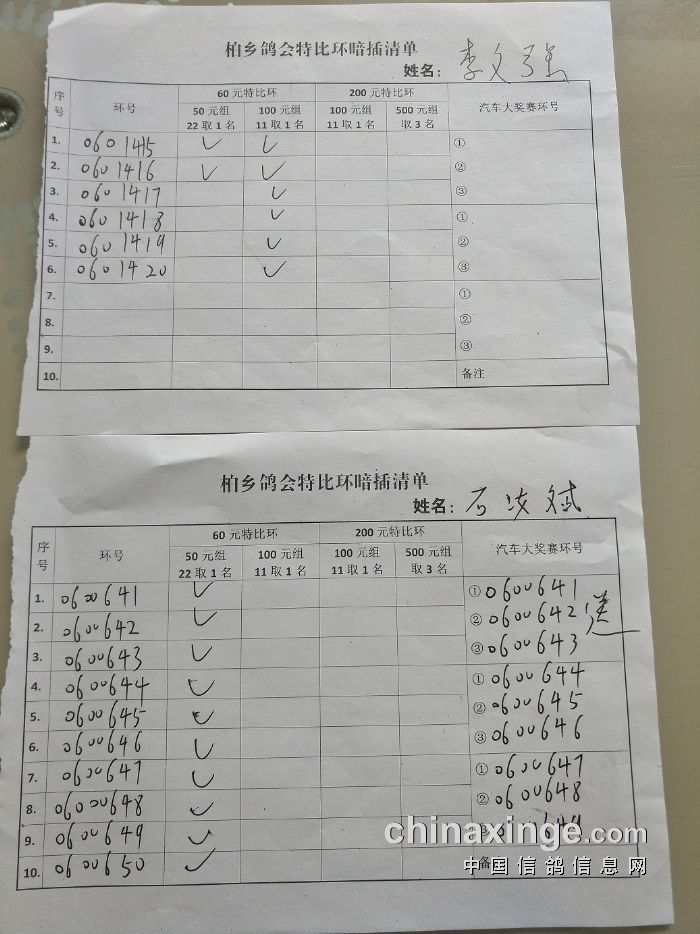 柏乡鸽会特比环暗插清单
姓名：李文强
序号 环号 60元特比环 200元特比环 汽车大奖赛环号
50元组 22取1名 100元组 11取1名 100元组 11取1名 500元组 取3名
1. 0601415 ✓ ✓ ①
2. 0601416 ✓ ✓ ②
3. 0601417 ✓ ③
4. 0601418 ✓ ①
5. 0601419 ✓ ②
6. 0601420 ✓ ③
7. ①
8. ②
9. ③
10. 备注
柏乡鸽会特比环暗插清单
姓名：石
序号 环号 60元特比环 200元特比环 汽车大奖赛环号
50元组 22取1名 100元组 11取1名 100元组 11取1名 500元组 取3名
1. 0600641 ✓ ①0600641
2. 0600642 ✓ ②0600642 送
3. 0600643 ✓ ③0600643
4. 0600644 ✓ ①0600644
5. 0600645 ✓ ②0600645
6. 0600646 ✓ ③0600646
7. 0600647 ✓ ①0600647
8. 06000648 ✓ ②0600648
9. 0600649 ✓
10. 0600650 ✓ 备
chinaxinge.com
中国信鸽信息网